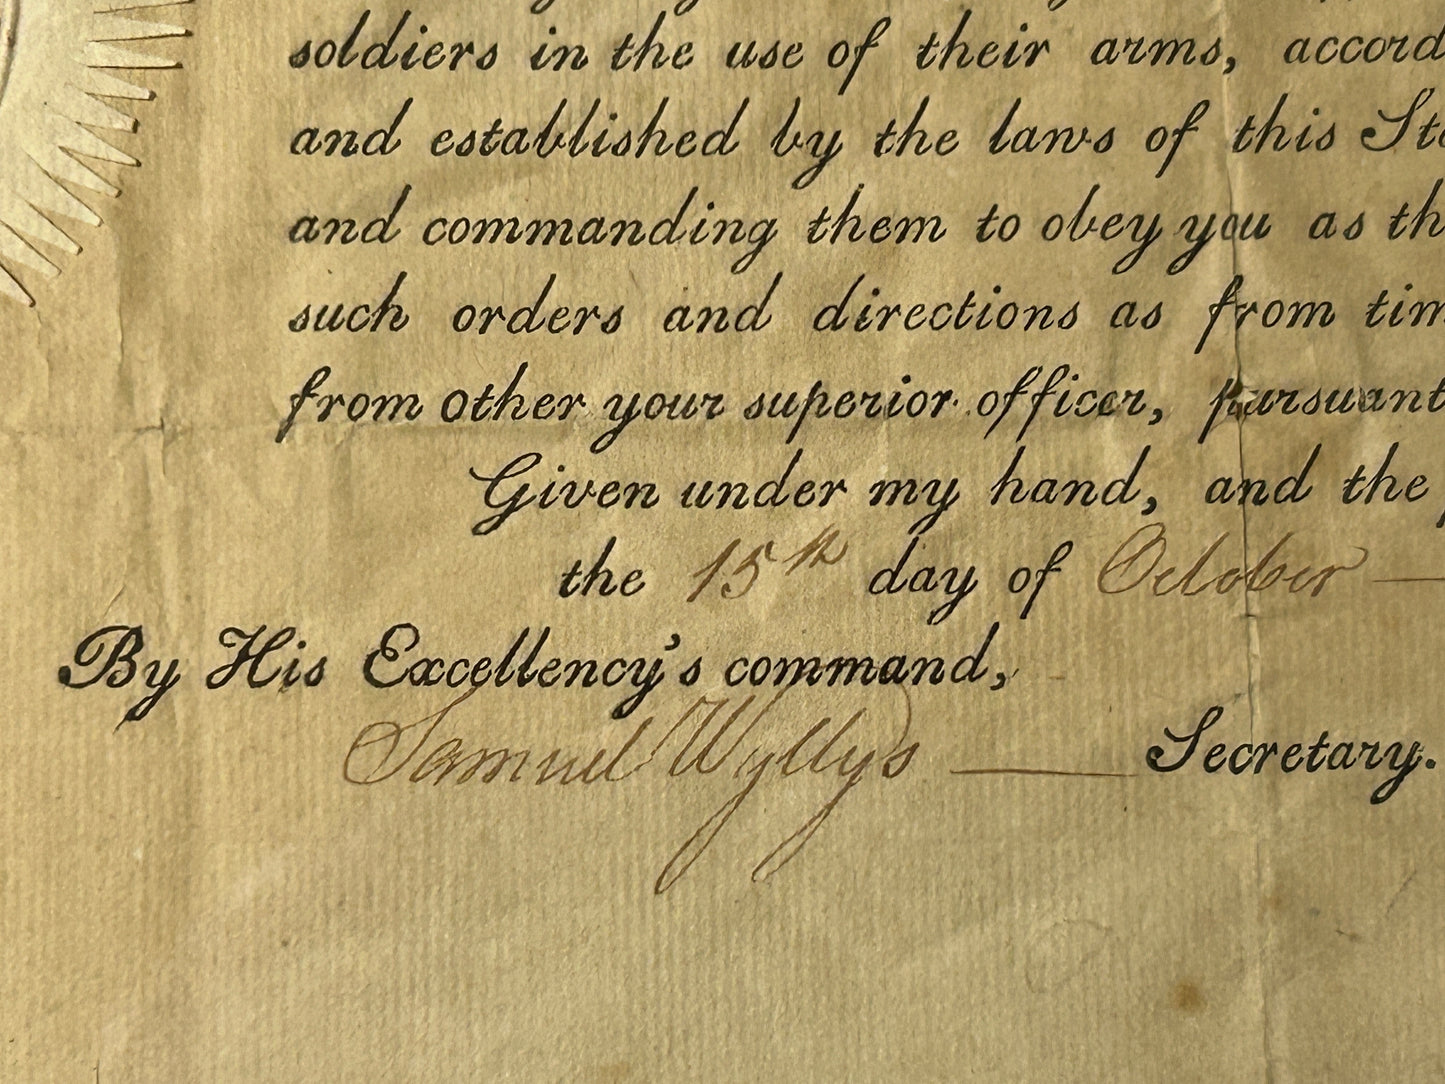 soldiers in the use of their arms, accord
and established by the laws of this Sta
and commanding them to obey you as th
such orders and directions as from tim
from other your superior officer, pursuant
Given under my hand, and the
the 15th day of October —
By His Excellency's command,
Samuel Wyllys — Secretary.